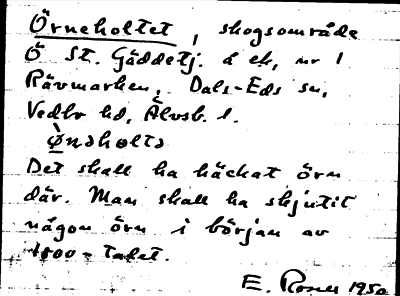 Örneholtet, skogsområde
Ö St. Gäddetj. å ek, nr 1
Rävmarken, Dals-Eds sn,
Vedbo hd, Älvsb. l.
Det skall ha häckat örn
där. Man skall ha skjutit
någon örn i början av
1800-talet.
E. Rosell 1950